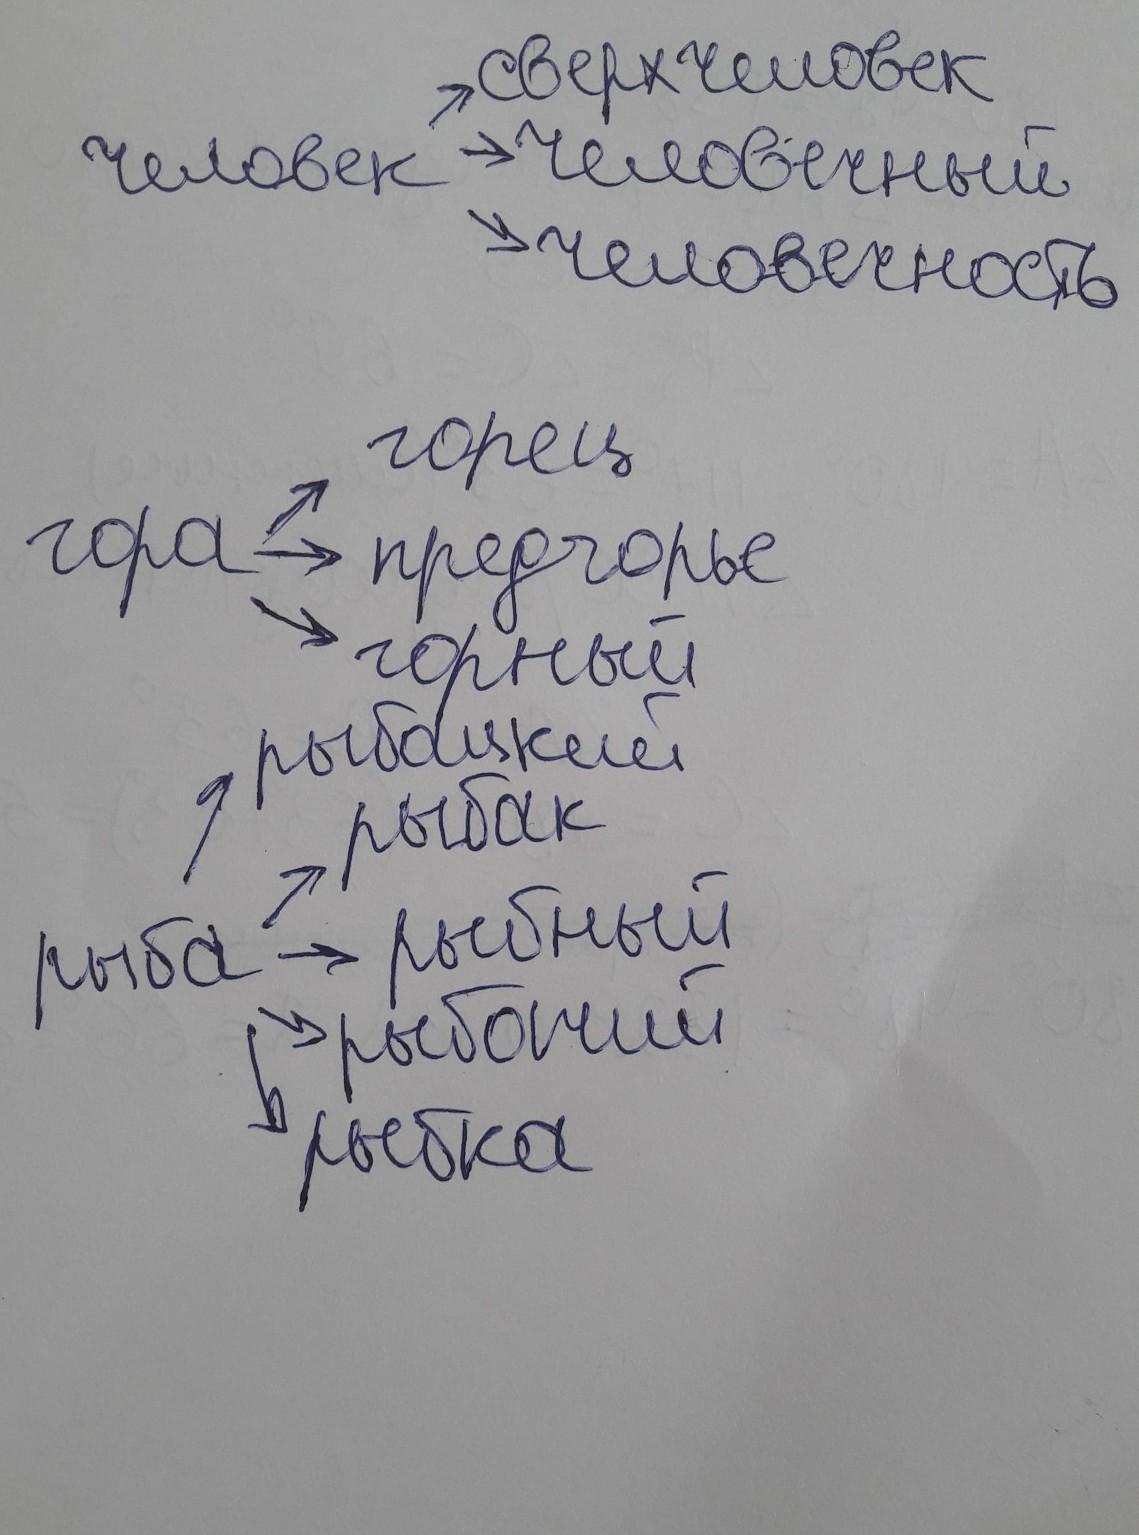 сверхчеловек
человек → человечный
человечность
горец
гора → предгорье
горный
рыбацкий
рыбак
рыба → рыбный
рыбачий
рыбка